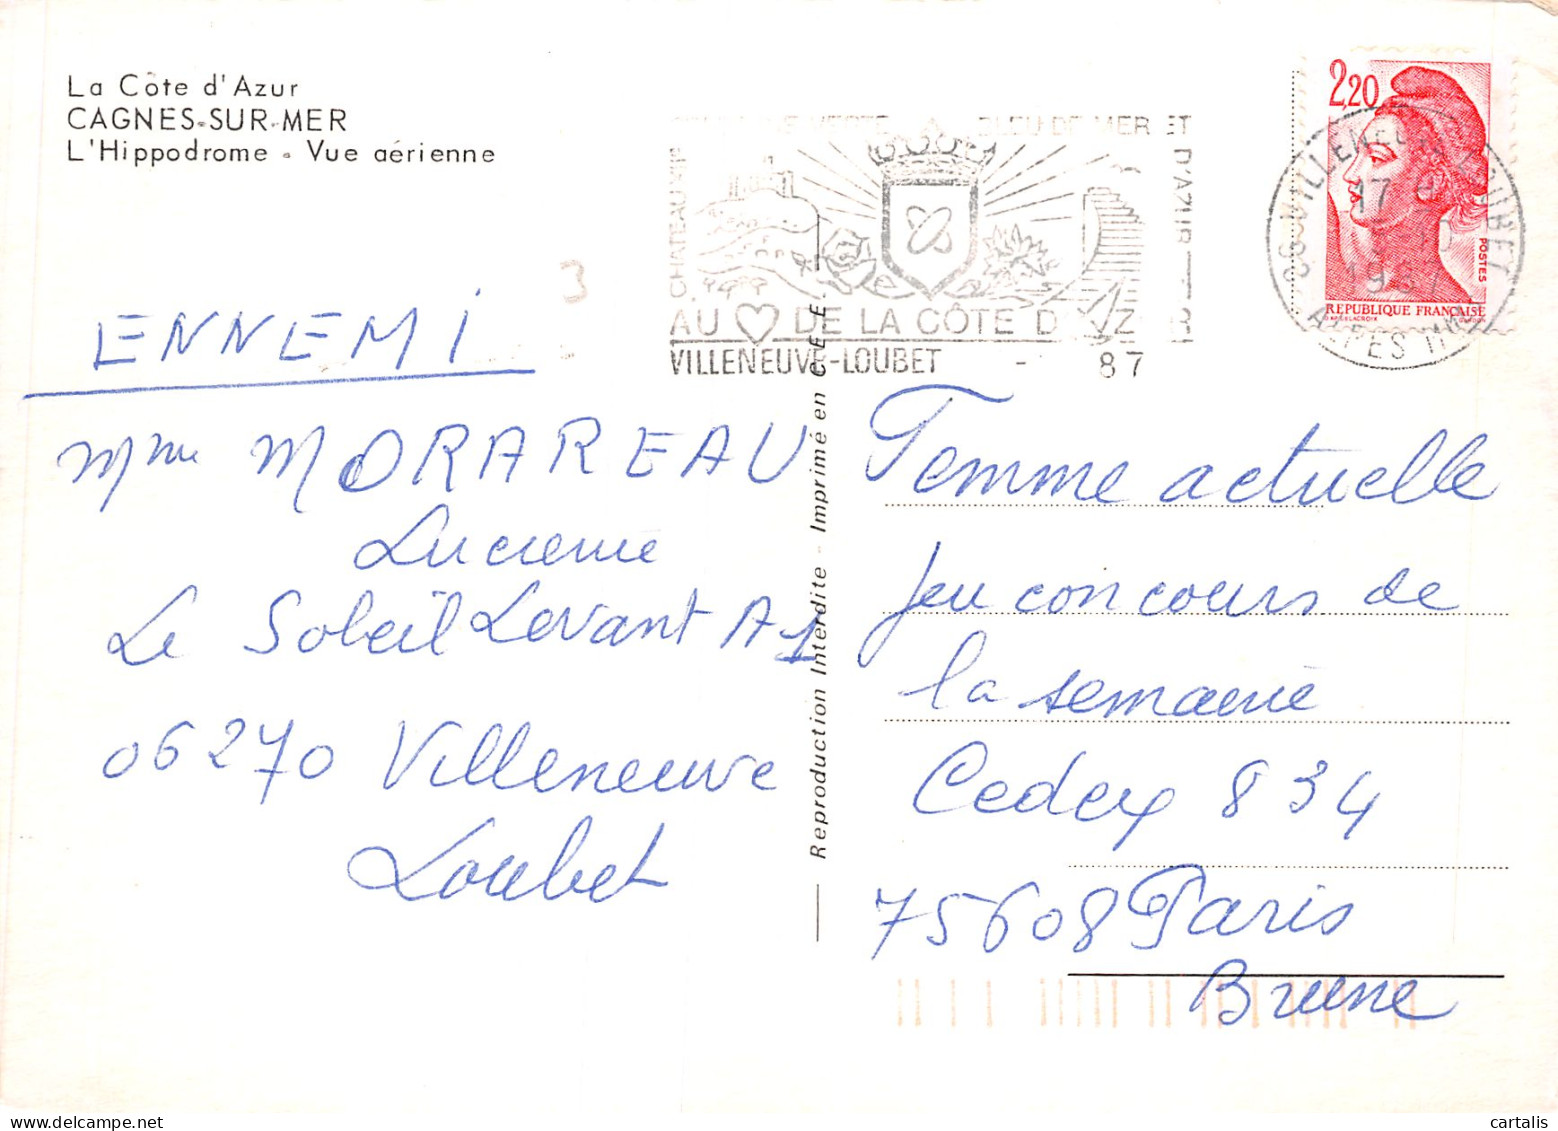 La Côte d'Azur
CAGNES-SUR-MER
L'Hippodrome - Vue aérienne
3
ENNEMI
Mme MORAREAU
Lucienne
Le Soleil Levant A1
06270 Villeneuve
Loubet
BLEU DE MER ET
D'AZUR
CHATEAU
AU DE LA CÔTE D'AZUR
VILLENEUVE-LOUBET - 87
Reproduction Interdite - Imprimé en C.E.E.
2,20
POSTES
REPUBLIQUE FRANÇAISE
06 VILLENEUVE LOUBET
17
1987
ALPES
Femme actuelle
Jeu concours de
la semaine
Cedex 834
75608 Paris
Brune
cartalis